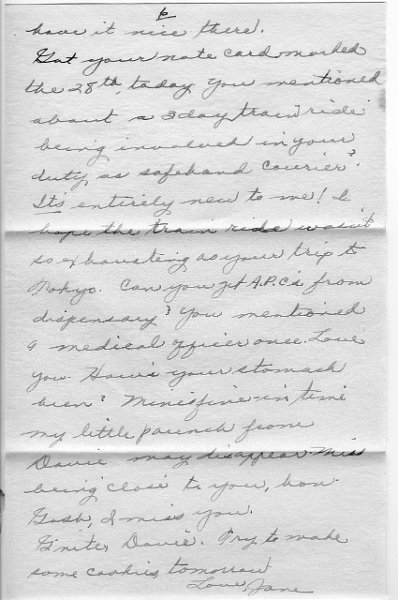 6
have it nice there.
Got your note card marked
the 28th, today. You mentioned
about a 2 day train ride
being involved in your
duty as safehand courier?
It's entirely new to me! I
hope the train ride wasn't
so exhausting as your trip to
Tokyo. Can you get A.P.C.s from
dispensary? You mentioned
a medical officer once. Love
you. How's your stomach
been? Mine's fine - in time
my little paunch from
Davie may disappear. Miss
being close to you, hon.
Gosh, I miss you.
G'nite, Davie. Try to make
some cookies tomorrow
Love, Jane